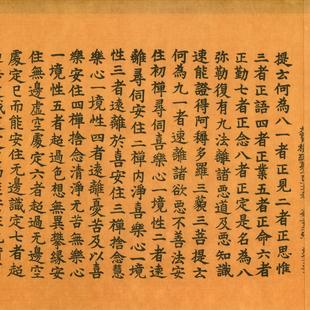 提云何為八一者正見二者正思惟
三者正語四者正業五者正命六者
正勤七者正念八者正定是名為八
弥勒復有九法離諸惡道及惡知識
速能證得阿耨多羅三藐三菩提云
何為九一者遠離諸欲惡不善法安
住初禪尋伺喜樂心一境性二者遠
離尋伺安住二禪內淨喜樂心一境
性三者遠離於喜安住三禪捨念慧
樂心一境性四者遠離憂苦及以喜
樂安住四禪捨念清淨无苦無樂心
一境性五者超過色想無異攀緣安
住無邊虛空處定六者超過無邊空
處定已而能安住無邊識定七者超